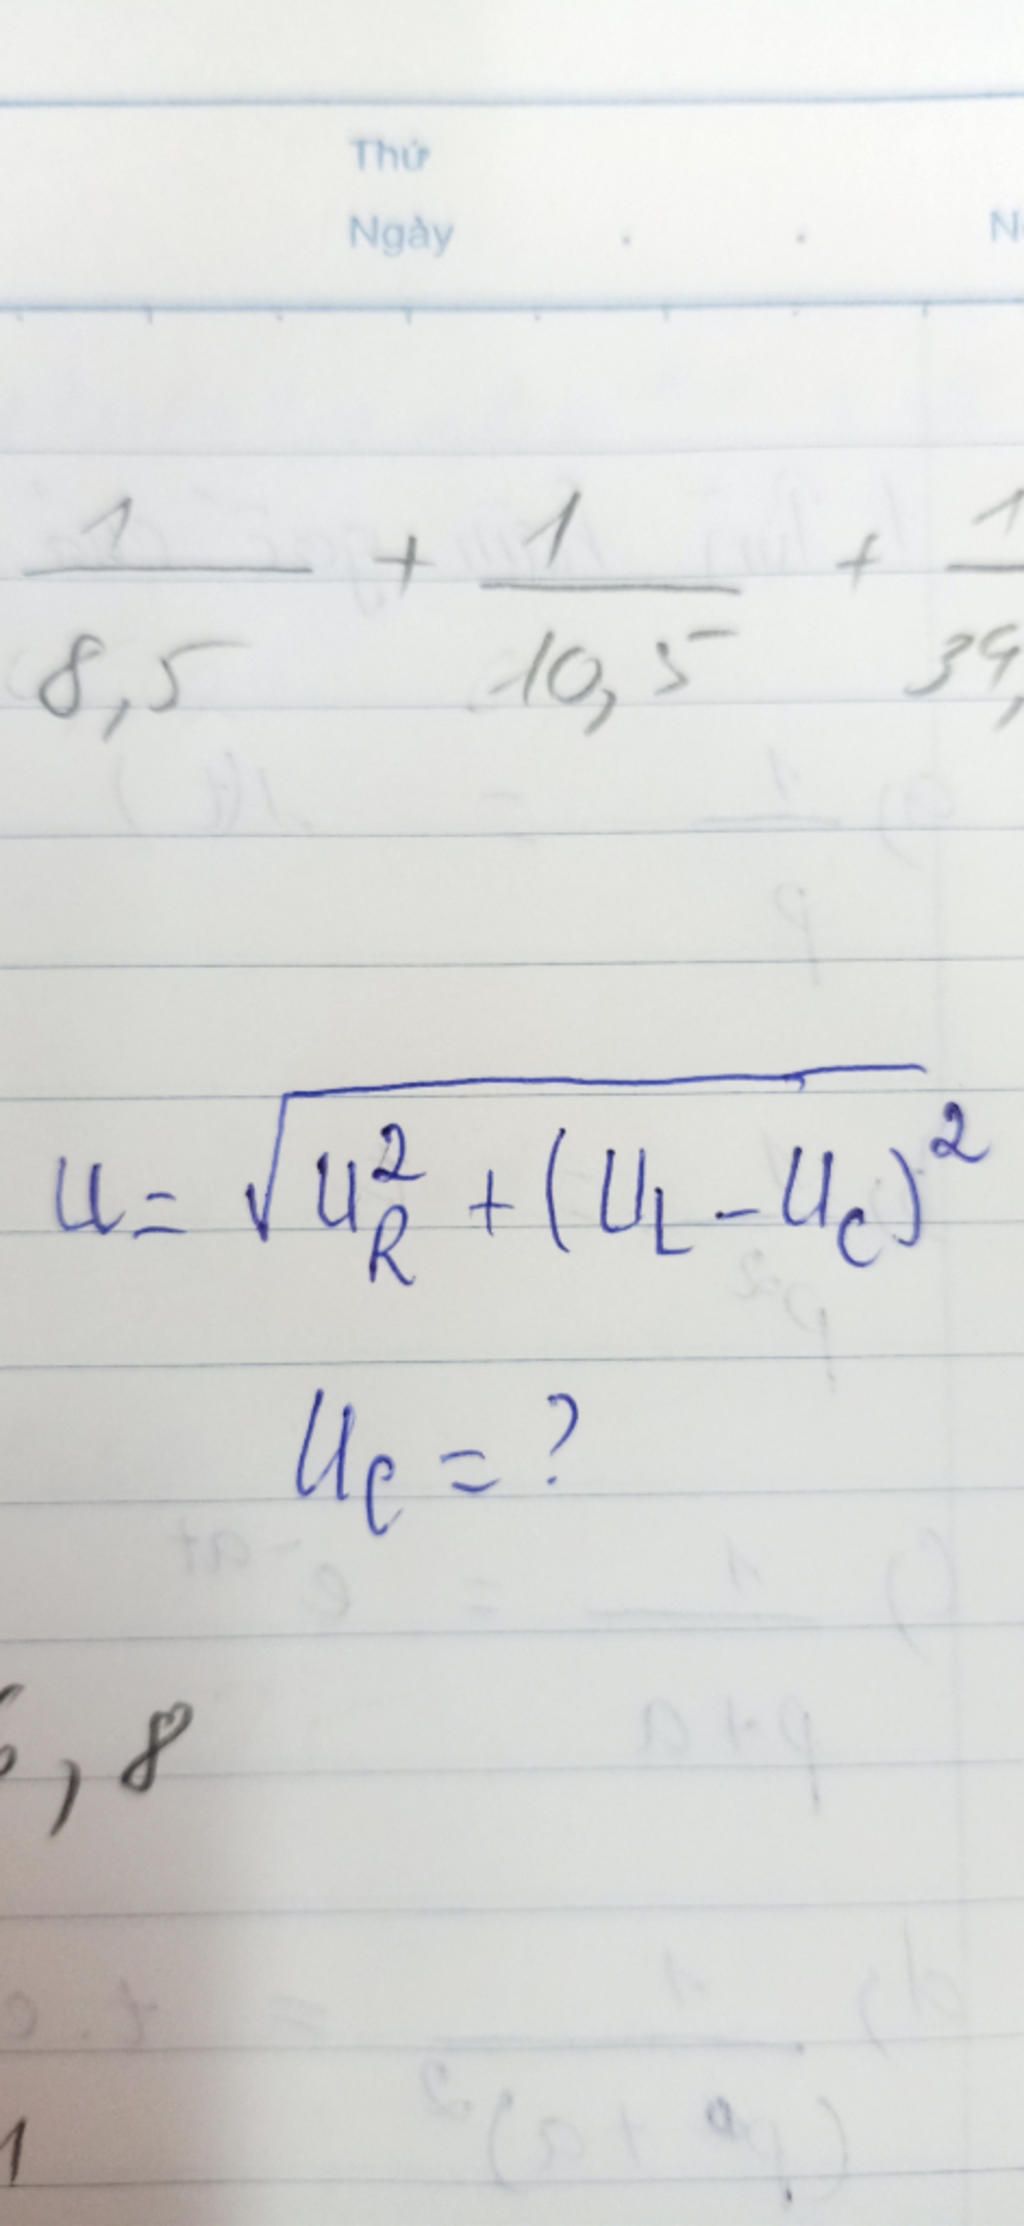 Thứ
Ngày
1/8,5 + 1/10,5 + 1/39,
U = √(U_R^2 + (U_L - U_C)^2)
U_C = ?
, 8
1